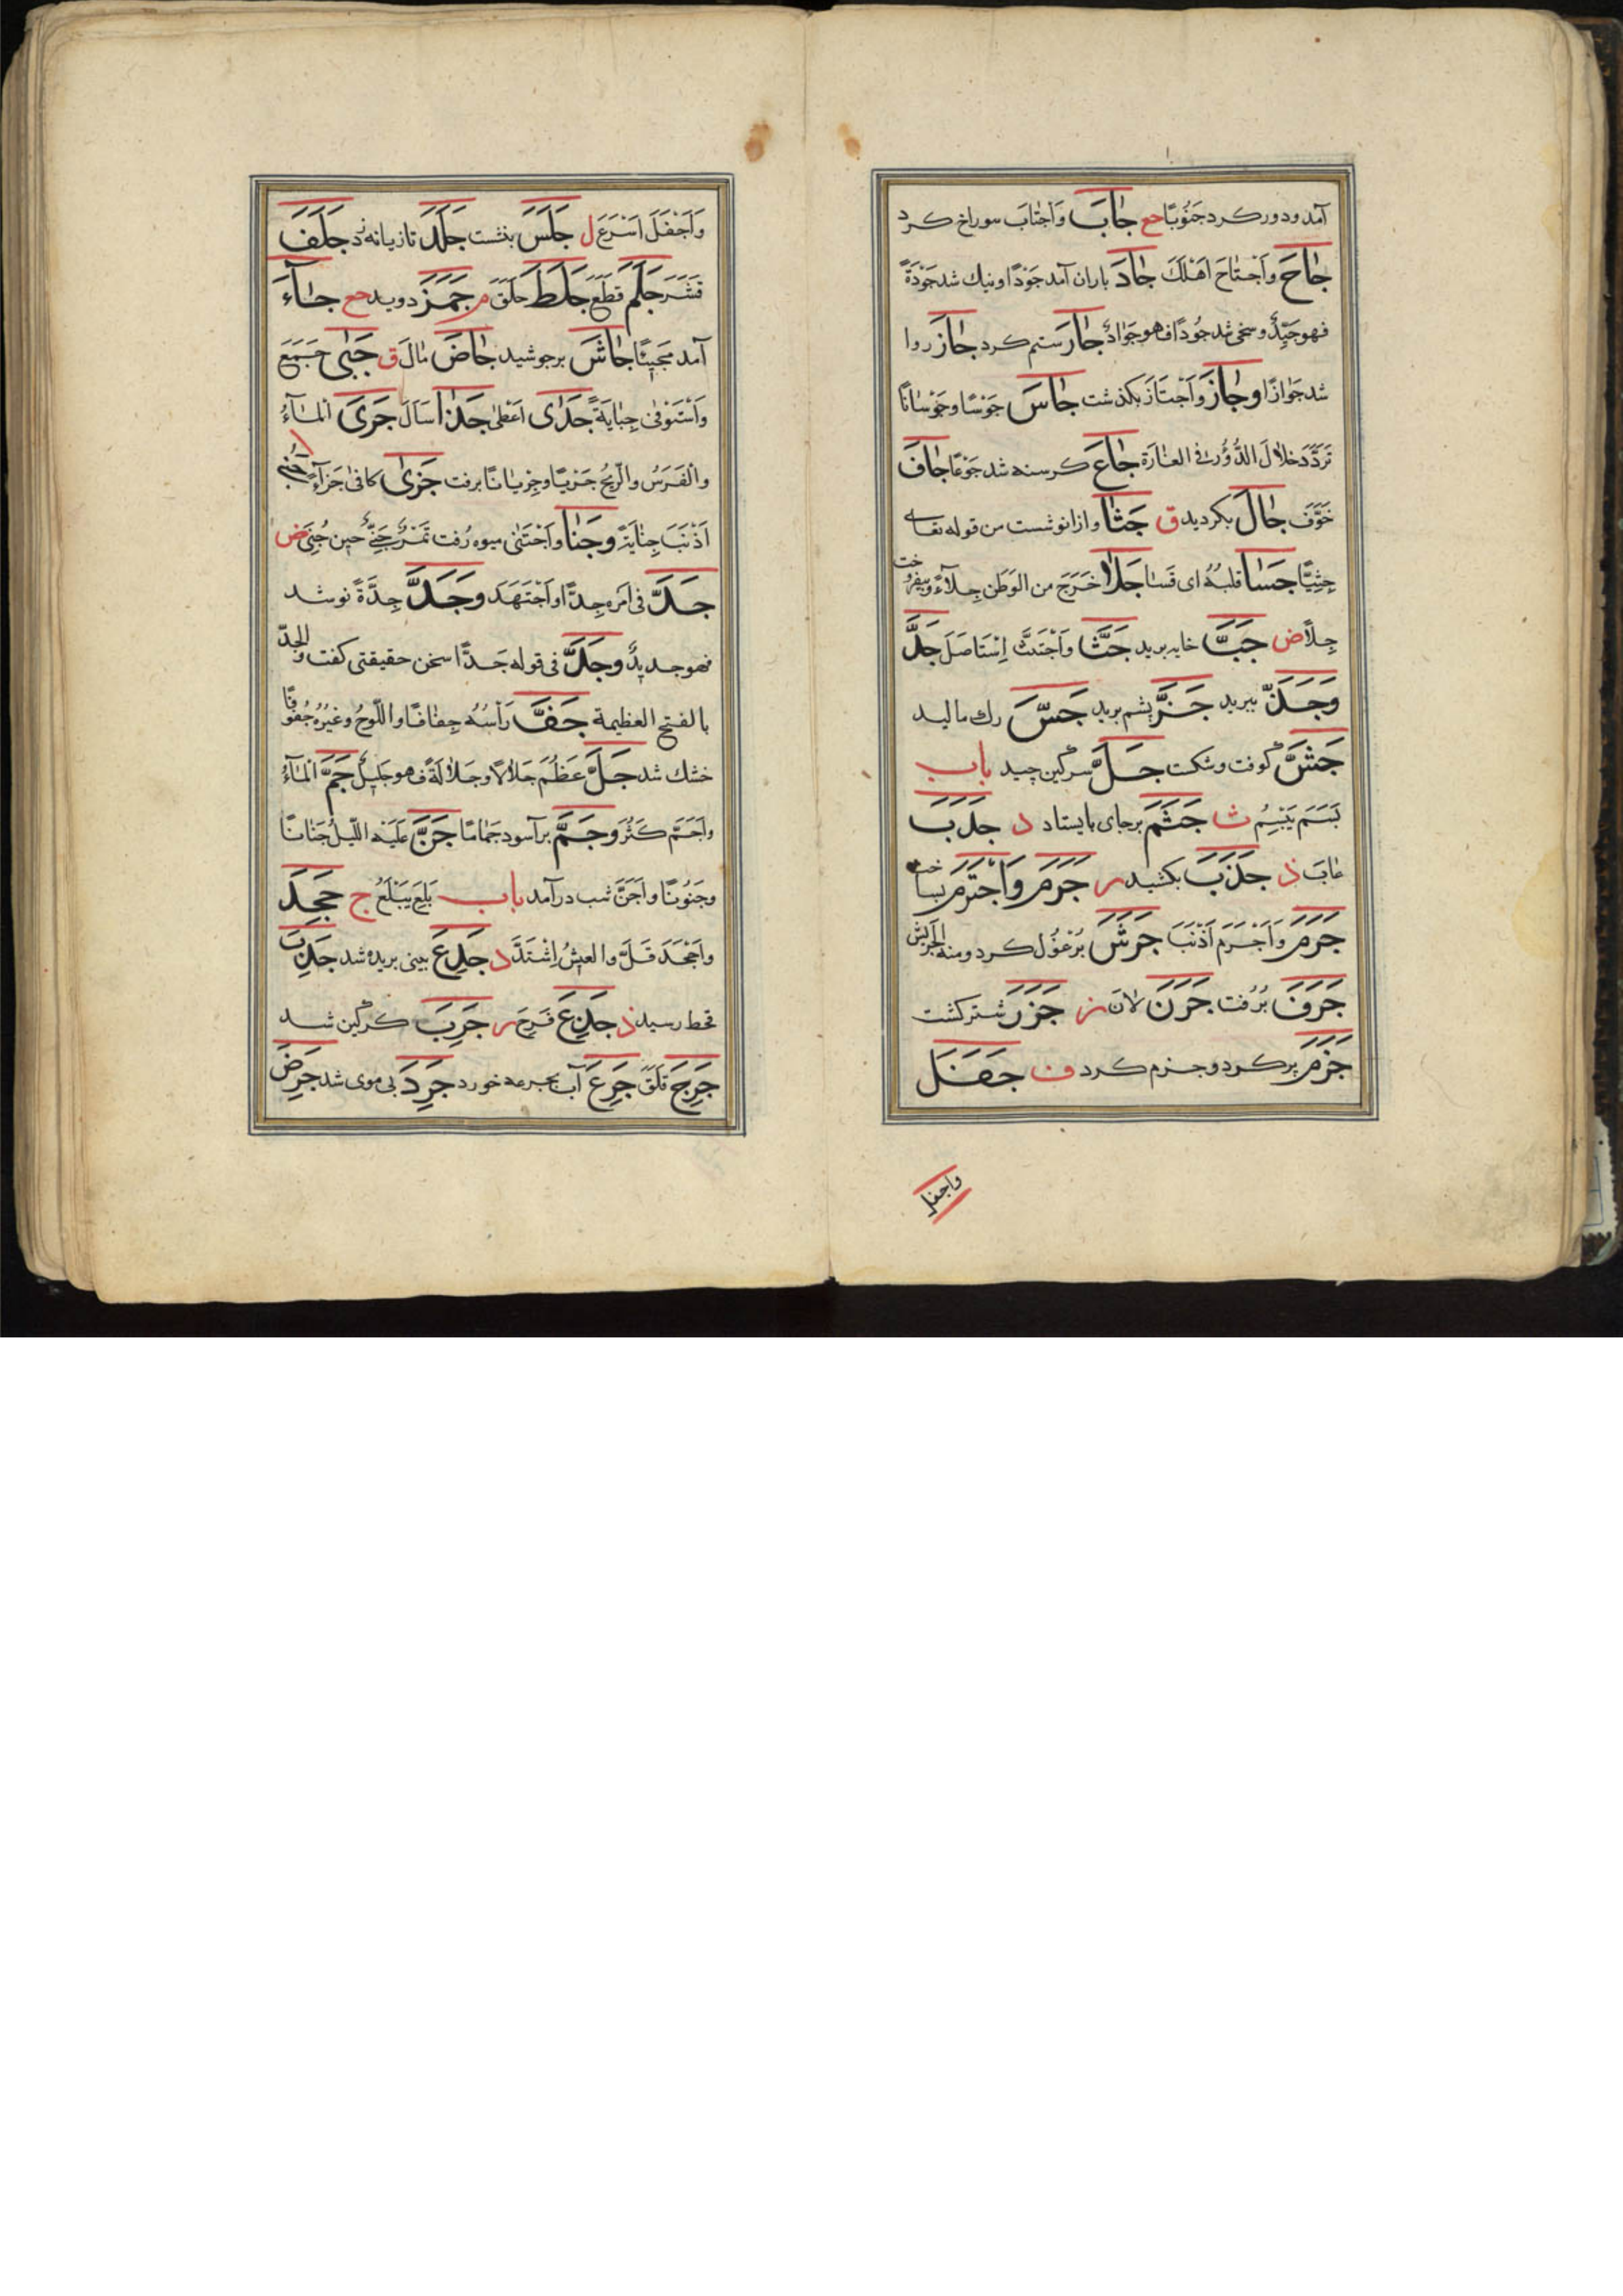 آمد و دور کرد جَنُوبًا حع جَابَ وَاَجْتَابَ سوراخ کرد
جَاحَ وَاَجْتَاحَ اَهْلَكَ جَادَ باران آمد جَوْدًا و نیك شد جَوْدَةً
فهو جَیِّدٌ و سخی شد جُودًا فهو جَوَادٌ جَارَ ستم کرد جَازَ روا
شد جَوَازًا وجَازَ وَاَجْتَازَ بکذشت جَاسَ جَوْسًا وجَوْسَانًا
تَرَدَّدَ خِلَالَ الدُّوْرِ فی الغَارَة جَاعَ کرسنه شد جَوْعًا جَافَ
خَوَّفَ جَالَ بکردید ق جَثَا وازانو نشست من قوله تعالی
جِثِیًّا جَسَا قلبُهُ ای قَسَا جَلَا خَرَجَ من الوَطَن جِلَآءً وبیفروخت
جِلًا ض جَبَّ خایه برید جَثَّ وَاَجْتَثَّ اِسْتَاصَلَ جَدَّ
وَجَذَّ ببرید جَزَّ پشم برید جَسَّ رك مالید
جَشَّ کوفت وشکست جَلَّ سرکین چید باب
بَسَمَ یَبْسِمُ ث جَثَمَ برجای بایستاد د جَدَبَ
عَابَ ذ جَذَبَ بکشید ر جَرَمَ وَاَجْتَرَمَ بساخت
جَرَمَ وَاَجْرَمَ اَذْنَبَ جَرَشَ بُرْغُول کرد ومنه الجَرِیْش
جَرَفَ بُرُفت جَرَنَ لَانَ ز جَزَرَ شتر کشت
جَزَمَ پر کرد و جزم کرد ف جَفَلَ
واجفل
وَاَجْفَلَ اَسْرَعَ ل جَلَسَ بنشست جَلَدَ تازیانه زد جَلَفَ
قَشَرَ جَلَمَ قَطَعَ جَلَطَ حَلَقَ م جَمَزَ دوید حع جَآءَ
آمد مَجِیْئًا جَاشَ برجوشید جَاضَ مَالَ ق جَبَی جَمَعَ
وَاَسْتَوْفٰی جِبَایَةً جَدَی اَعْطٰی جَذَا سَاَلَ جَرَیَ المَآءُ
والفَرَسُ والرِّیْحُ جَرْیًا وجِرْیَانًا برفت جَزَی کافٰی جَزَآءً جَنٰی
اَذْنَبَ جِنَایَةً وجَنَا وَاَجْتَنٰی میوه رُفت تَمْرٌ جَنِیٌّ حین جُنِیَ ض
جَدَّ فی اَمْرِه جِدًّا وَاَجْتَهَدَ وجَدَّ جِدَّةً نو شد
فهو جدیدٌ وجَدَّ فی قوله جَدًّا سخن حقیقتی کفت والجدّ
بالفتح العظیمة جَفَّ رَاْسُهُ جِفَافًا واللّوحُ وغیْرُهُ جُفُوفًا
خشك شد جَلَّ عَظُمَ جَلَالًا وجَلَالَةً فهو جَلِیْلٌ جَمَّ المَآءُ
واَجَمَّ کَثُرَ وجَمَّ برآسود جَمَامًا جَنَّ عَلَیْهِ اللّیلُ جَنَانًا
وجَنُوْنًا واَجَنَّ شب درآمد باب بَلِعَ یَبْلَعُ ج جَحِدَ
واَجْحَدَ قَلَّ والعیشُ اِشْتَدَّ د جَدِعَ بینی بریده شد جَدِبَ
قحط رسید ذ جَذِعَ فَرِحَ ر جَرِبَ کرکین شد
جَرِجَ قَلِقَ جَرِعَ آب بجرعه خورد جَرِدَ بی موی شد جَرِضَ